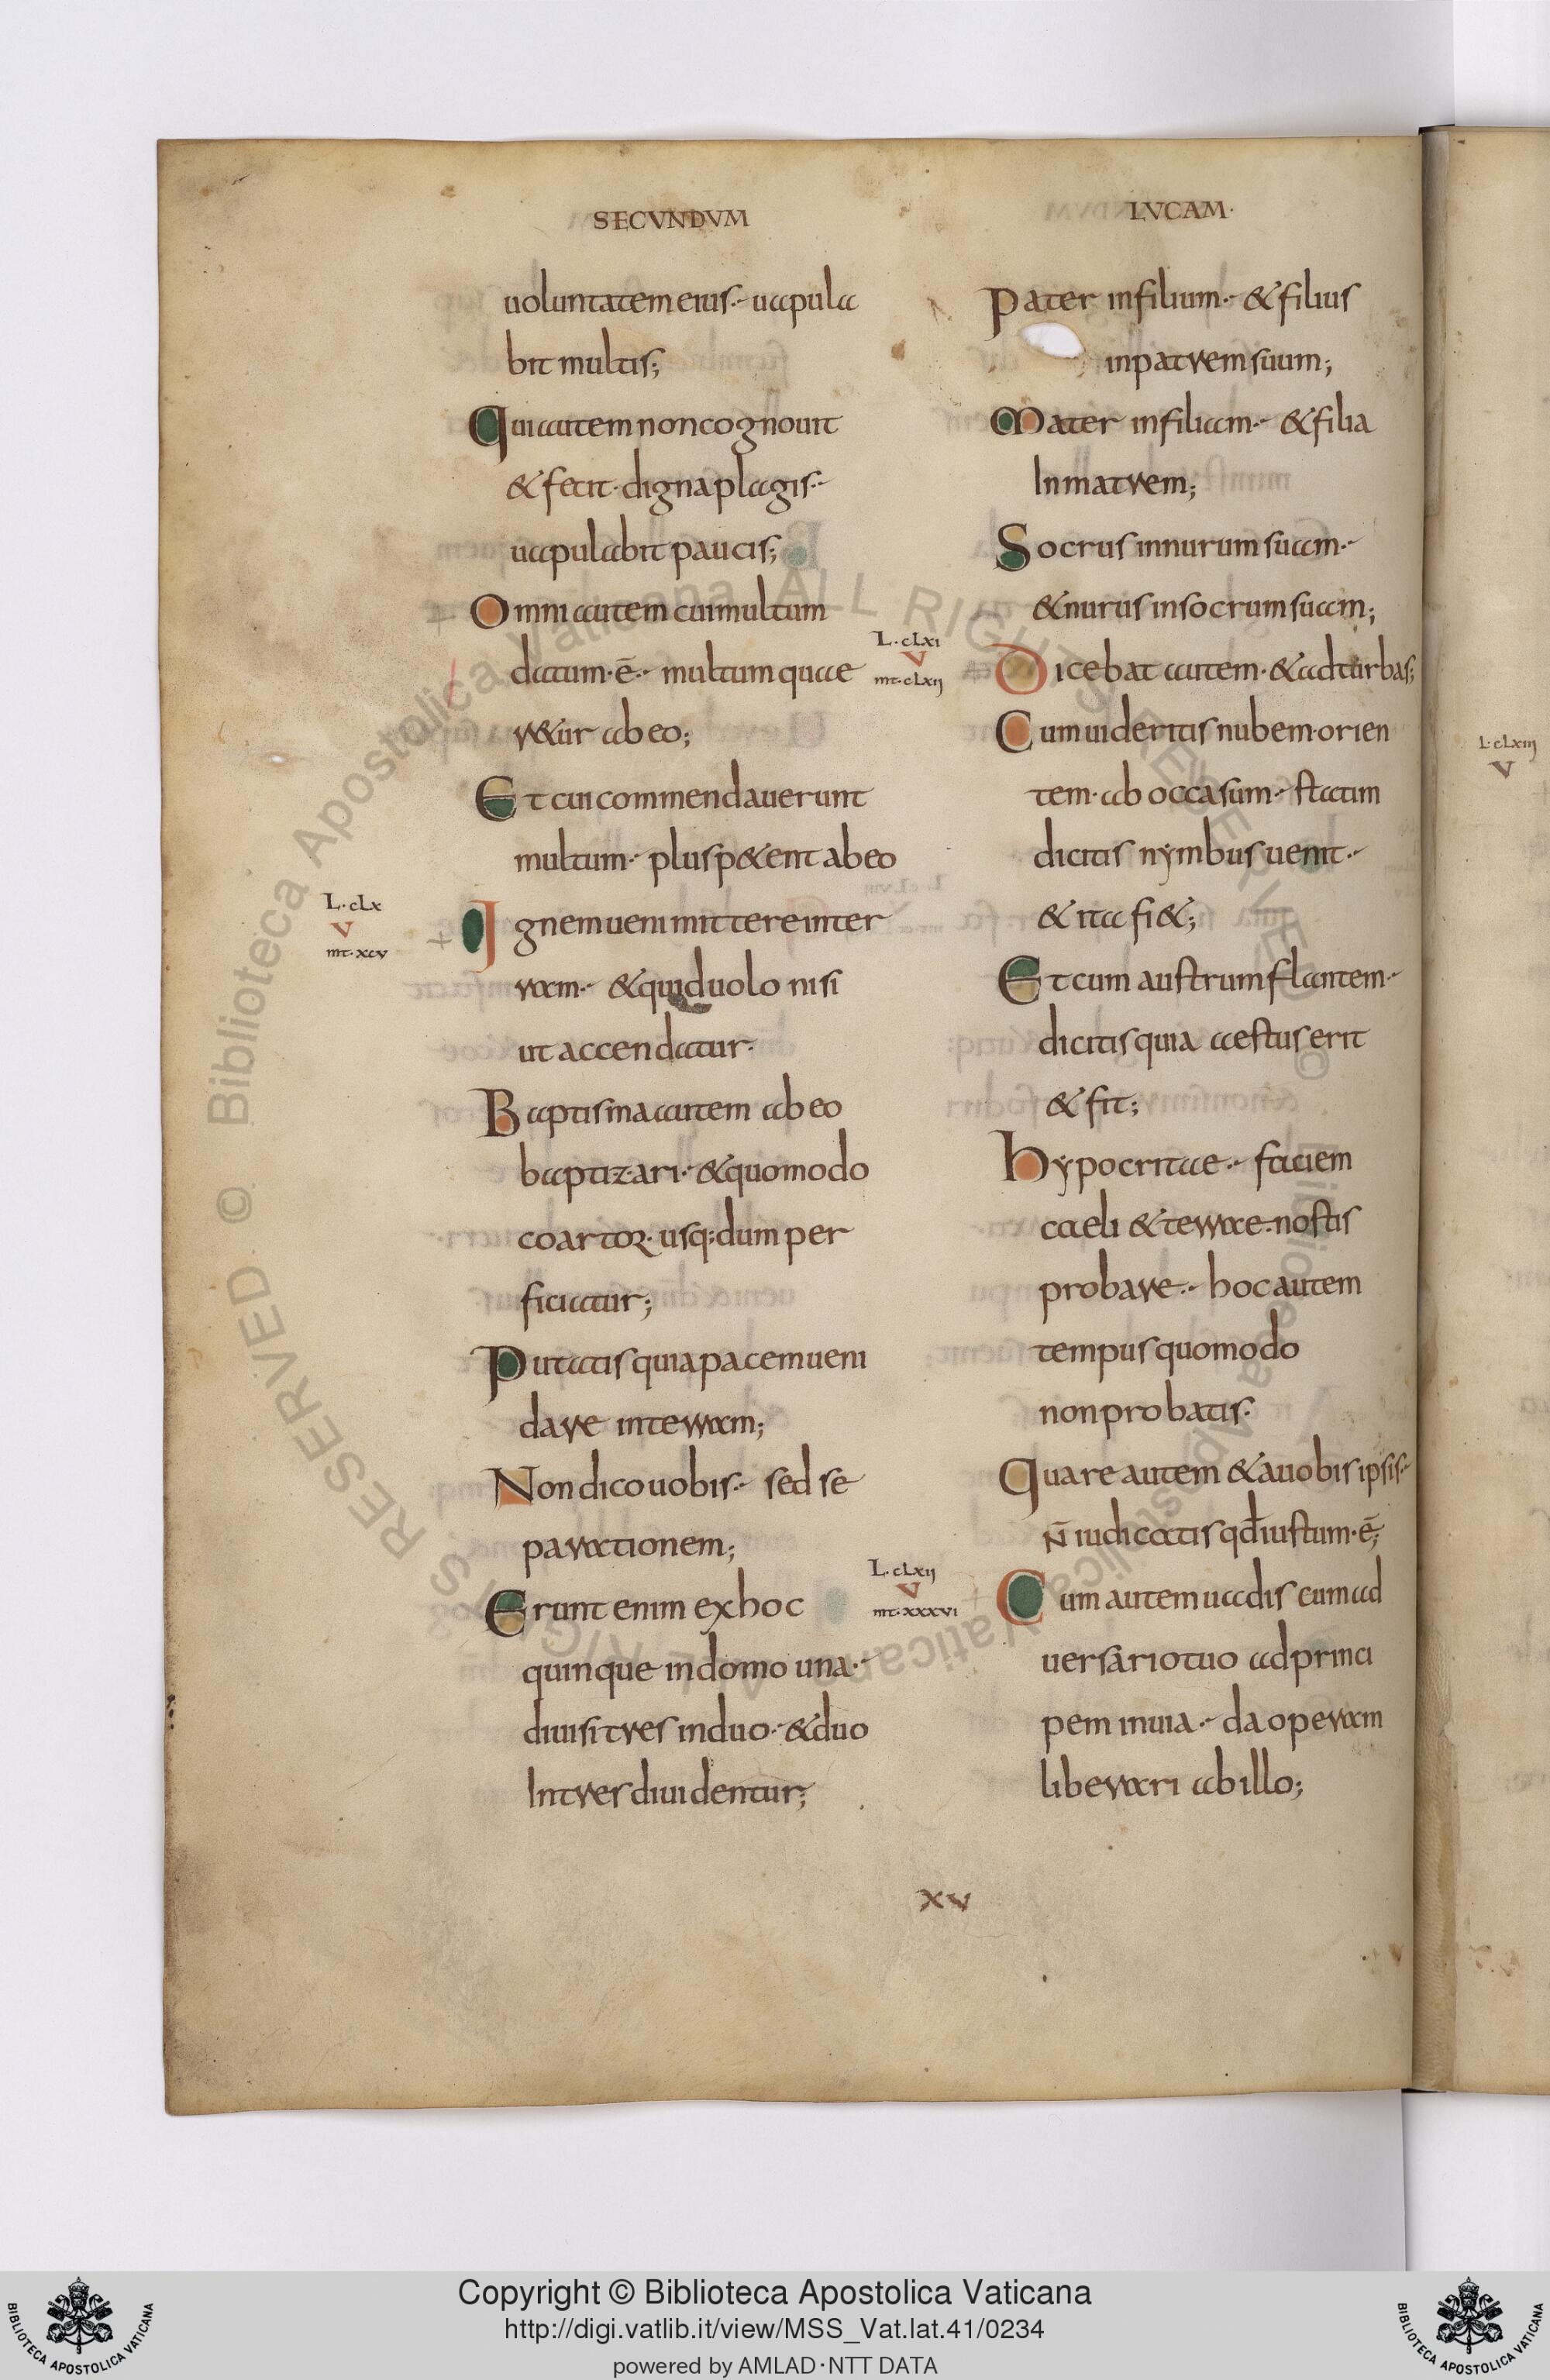 SECVNDVM
uoluntatem eius· uapula
bit multis;
Qui autem non cognouit
& fecit· digna plagis·
uapulabit paucis;
Omni autem cui multum
datum· ē· multum quae
r&ur ab eo;
Et cui commendauerunt
multum· plus p&ent ab eo
L· cLx
v
mt· xcv
Ignem ueni mittere inter
ram· & quid uolo nisi
ut accendatur·
Baptisma autem ab eo
baptizari· & quomodo
coartor· usq; dum per
ficiatur;
Putatis quia pacem ueni
dare in terram;
Non dico uobis· sed se
parationem;
Erunt enim ex hoc
quinque in domo una·
diuisi tres in duo· & duo
In tres diuidentur;
LVCAM·
Pater in filium· & filius
in patrem suum;
Mater in filiam· & filia
In matrem;
Socrus in nurum suam·
& nurus in socrum suam;
L· cLxı
v
mt· cLxıȷ
Dicebat autem· & ad turbas;
Cum uideritis nubem orien
tem· ab occasum· statim
dicitis nymbus uenit·
& ita fi&;
Et cum austrum flantem·
dicitis quia aestus erit
& fit;
hypocritae· faciem
caeli & terrae· nostis
probare· hoc autem
tempus quomodo
non probatis·
Quare autem & a uobis ipsis·
n̄ iudicatis qđ iustum· ē;
L· cLxıȷ
v
mt· xxxvı
Cum autem uadis cum ad
uersario tuo ad princi
pem in uia· da operam
liberari ab illo;
xv
L· cLxıȷȷ
v
Copyright © Biblioteca Apostolica Vaticana
http://digi.vatlib.it/view/MSS_Vat.lat.41/0234
powered by AMLAD·NTT DATA
BIBLIOTECA APOSTOLICA VATICANA
BIBLIOTECA APOSTOLICA VATICANA
© Biblioteca Apostolica Vaticana ALL RIGHTS RESERVED
© Biblioteca Apostolica Vaticana ALL RIGHTS RESERVED